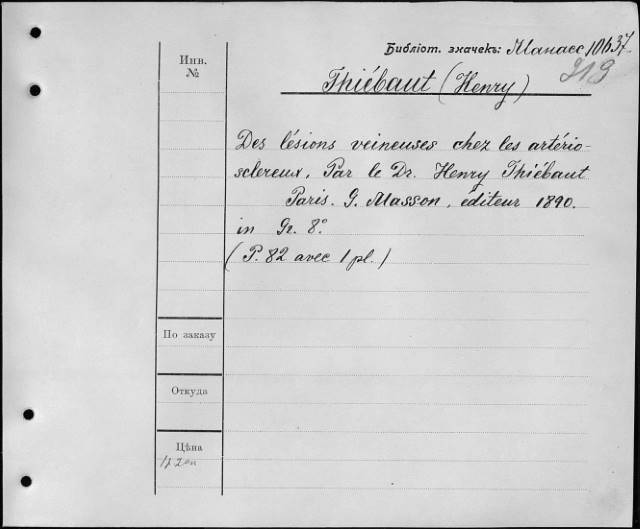 Библіот. значекъ: Манасс 10637
Инв.
№
Thiébaut (Henry)
Des lésions veineuses chez les artério-
sclereux, Par le Dr. Henry Thiébaut
Paris. G. Masson, éditeur 1890.
in Gr. 8°.
(P. 82 avec 1 pl.)
По заказу
Откуда
Цѣна